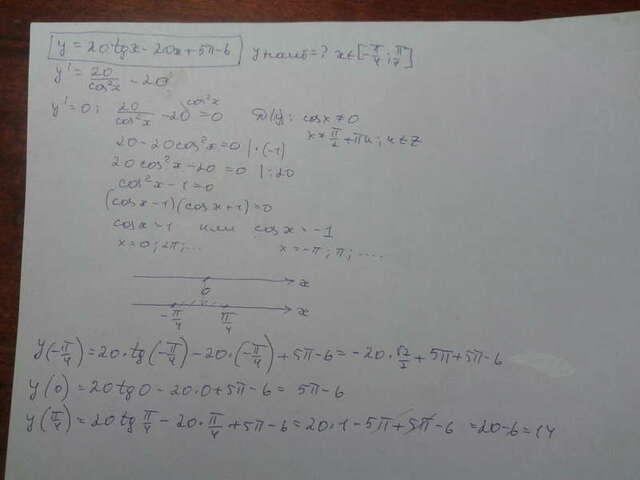 y = 20 tgx - 20x + 5π - 6 yнаиб = ? x∈[-π/4; π/4]
y' = 20/cos²x - 20
y' = 0; 20/cos²x - 20 cos²x = 0 D(y): cosx ≠ 0
x ≠ π/2 + πn; n∈Z
20 - 20cos²x = 0 | ·(-1)
20cos²x - 20 = 0 | :20
cos²x - 1 = 0
(cosx - 1)(cosx + 1) = 0
cosx = 1 или cosx = -1
x = 0; 2π; ... x = -π; π; ....
x
0
-π/4 π/4 x
y(-π/4) = 20·tg(-π/4) - 20·(-π/4) + 5π - 6 = -20·√2/2 + 5π + 5π - 6
y(0) = 20tg0 - 20·0 + 5π - 6 = 5π - 6
y(π/4) = 20·tg π/4 - 20·π/4 + 5π - 6 = 20·1 - 5π + 5π - 6 = 20 - 6 = 14